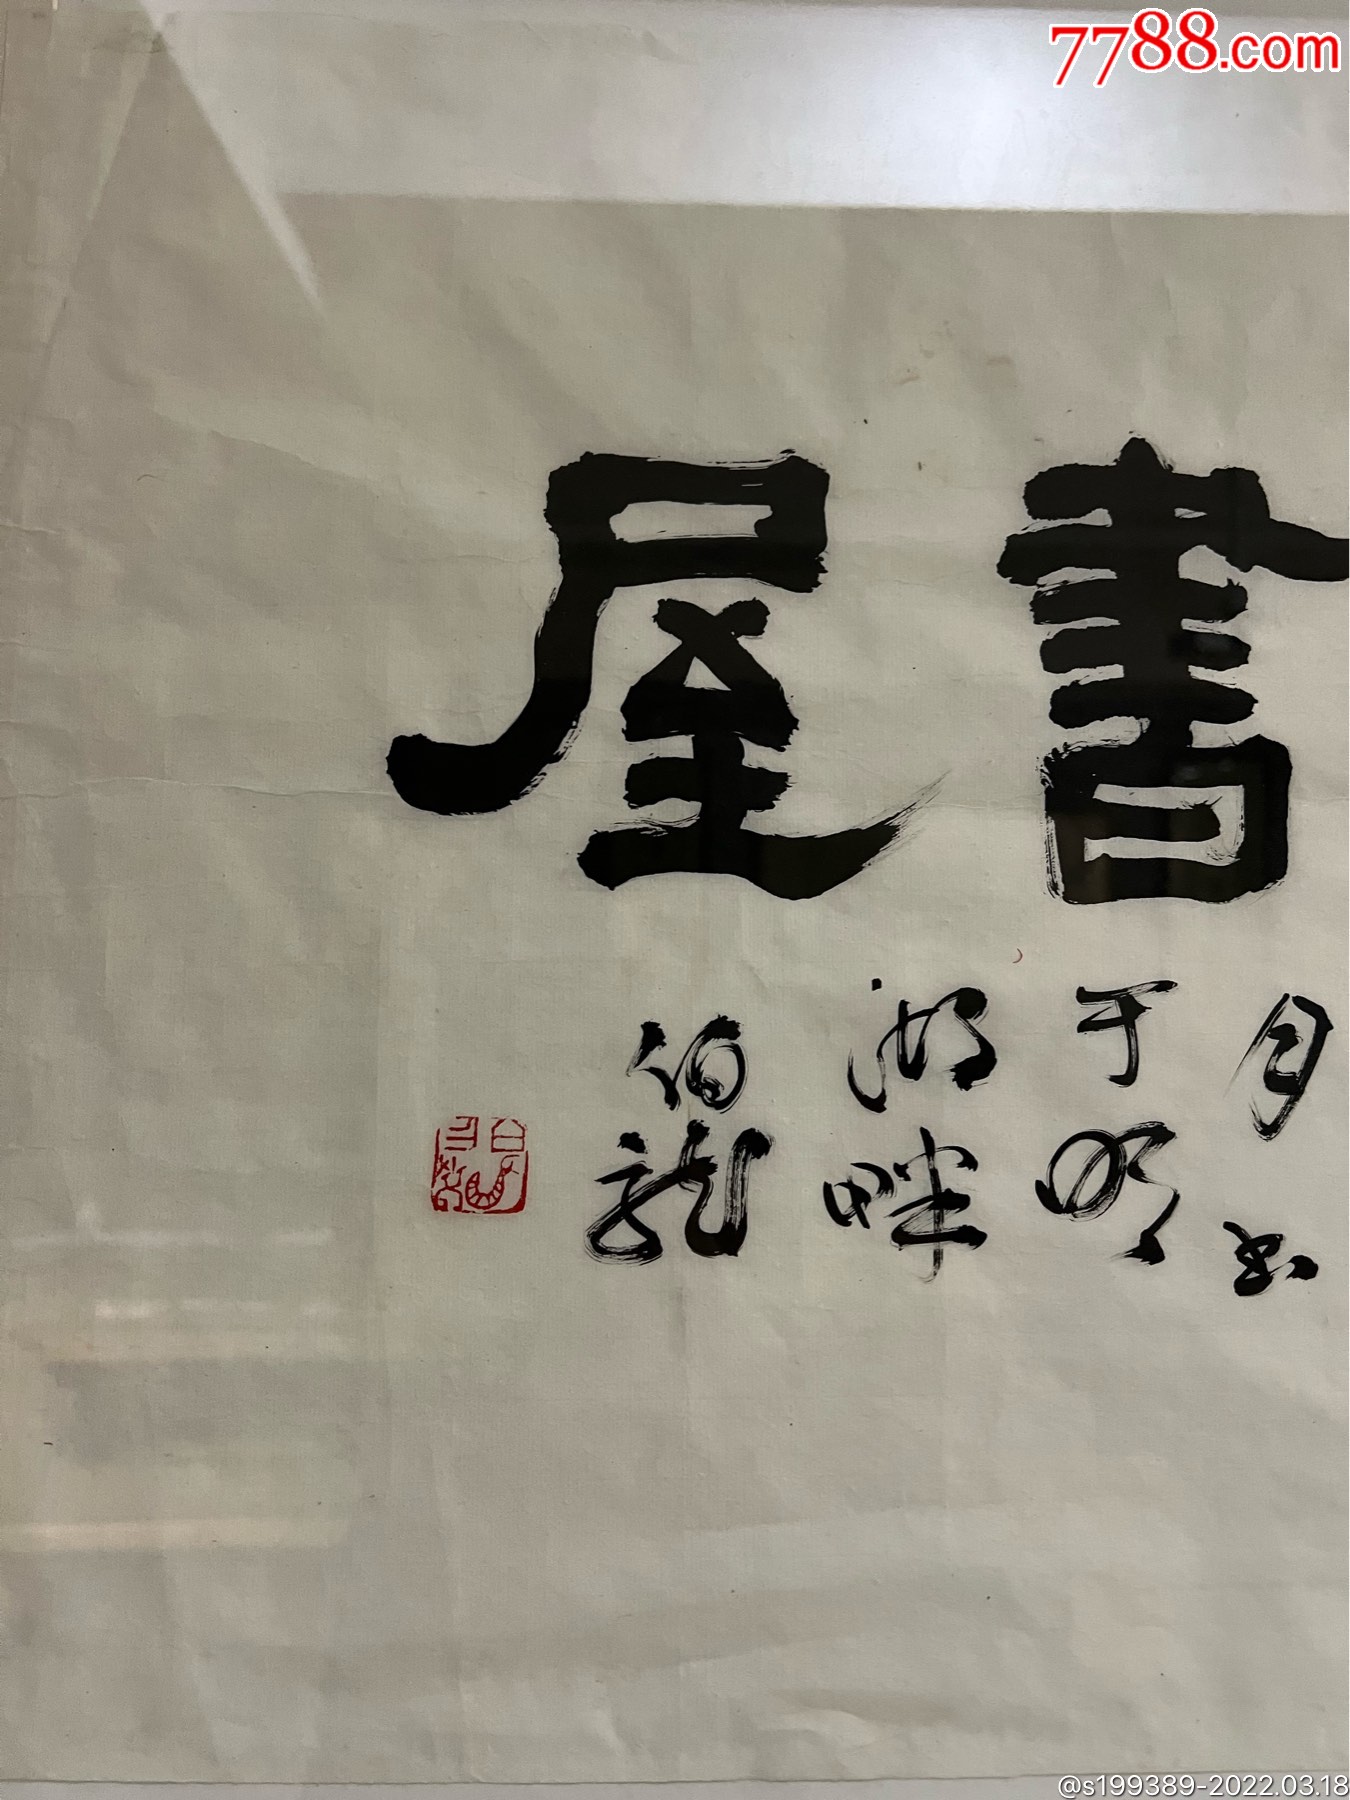 7788.com
書屋
月书
于明
湖畔
伯龍
@s199389-2022.03.18